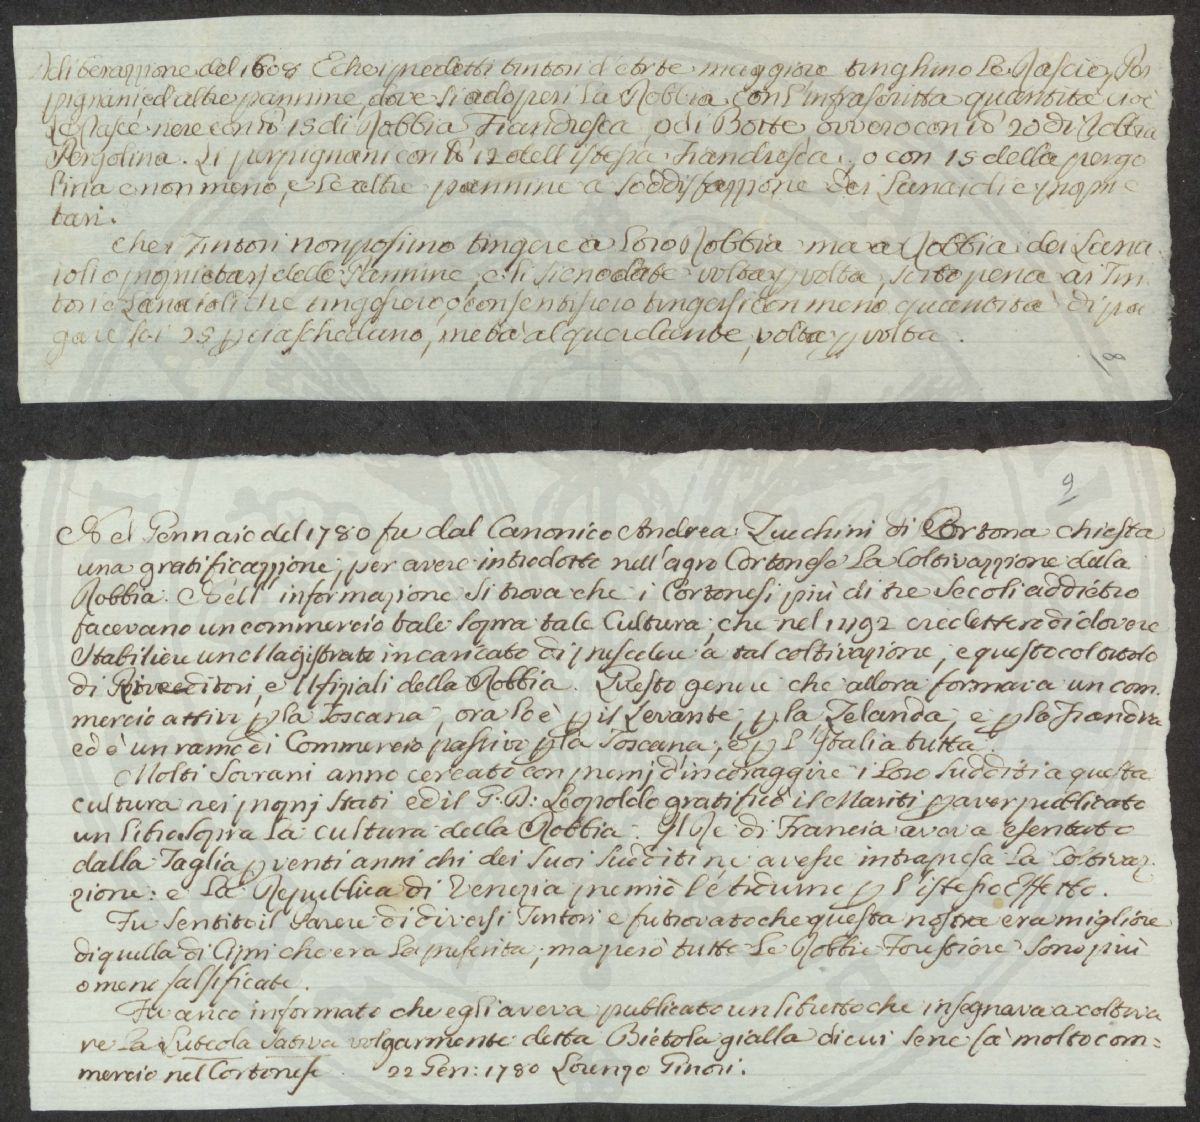 Deliberazzione del 1608 E che i predetti tintori d'Arte maggiore tinghino Le Rascie, Per
pignani, ed'altre pannine, dove si adoperi La Robbia con l'infrascritta quantità cioè
Le Rasce nere con lb 15 di Robbia Fiandresca o di Botte ovvero con lb 20 di Robbia
Pergolina. Li perpignani con lb 12 dell'istessa Fiandresca, o con 15 della pergo
lina e non meno, e Le altre pannine a Soddisfazzione dei Lanaioli e propie
tari.
che i Tintori non possino tingere a loro Robbia ma a Robbia dei Lana
ioli o propietarj delle Pannine, e li sieno date volta p volta, sotto pena ai Tin
tori e Lanaioli che tingessero, o consentissero tingersi con meno quantità di pa
gare sc: 25 p ciascheduno, metà al querelante, volta p volta.
8
9
Nel Gennaio del 1780 fu dal Canonico Andrea Zucchini di Cortona chiesta
una gratificazzione, per avere introdotta nell'agro Cortonese La Coltivazzione della
Robbia. Nell'informazione si trova che i Cortonesi più di tre Secoli addietro
facevano un commercio tale sopra tale Cultura, che nel 1492 credettero di dovere
Stabilire un Magistrato incaricato di presedere a tal coltivazione, e questo col titolo
di Riveditori, e Ufiziali della Robbia. Questo genere che allora formava un com,
mercio attivo p la Toscana, ora lo è p il Levante, p la Zelanda, e p la Fiandra
ed è un ramo di Commercio passivo p la Toscana, e p L'Italia tutta.
Molti Sovrani anno cercato con premj d'incoraggire i Loro Sudditi a questa
cultura nei proprj Stati ed il G. D: Leopoldo gratificò il Mariti p aver publicato
un libro sopra La cultura della Robbia. Il Re di Francia aveva esentato
dalla Taglia p venti anni chi dei Suoi Sudditi ne avesse intrapresa La Coltivaz,
zione: e La Republica di Venezia premiò l'Arduino p l'istesso Effetto.
Fu Sentito il Parere di diversi Tintori e fu trovato che questa nostra era migliore
di quella di Cipri che era La preferita, ma però tutte Le Robbie Forestiere Sono più
o meno falsificate.
Fu anco informato che egli aveva publicato un libretto che insegnava a coltiva
re La Luteola Sativa volgarmente detta Bietola gialla di cui se ne fà molto com=
mercio nel Cortonese. 22 Gen: 1780 Lorenzo Ginori.